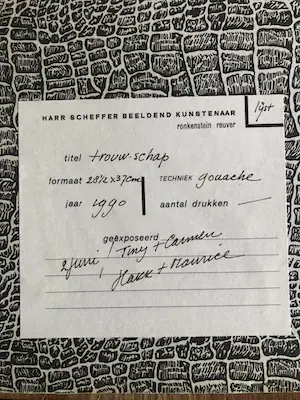 HARR SCHEFFER BEELDEND KUNSTENAAR
ronkenstein reuver
lijst
titel trouw-schap
formaat 28½ x 37 cm
TECHNIEK gouache
jaar 1990
aantal drukken —
geëxposeerd
2 juni / Tiny + Carmen
/ Harr + Maurice